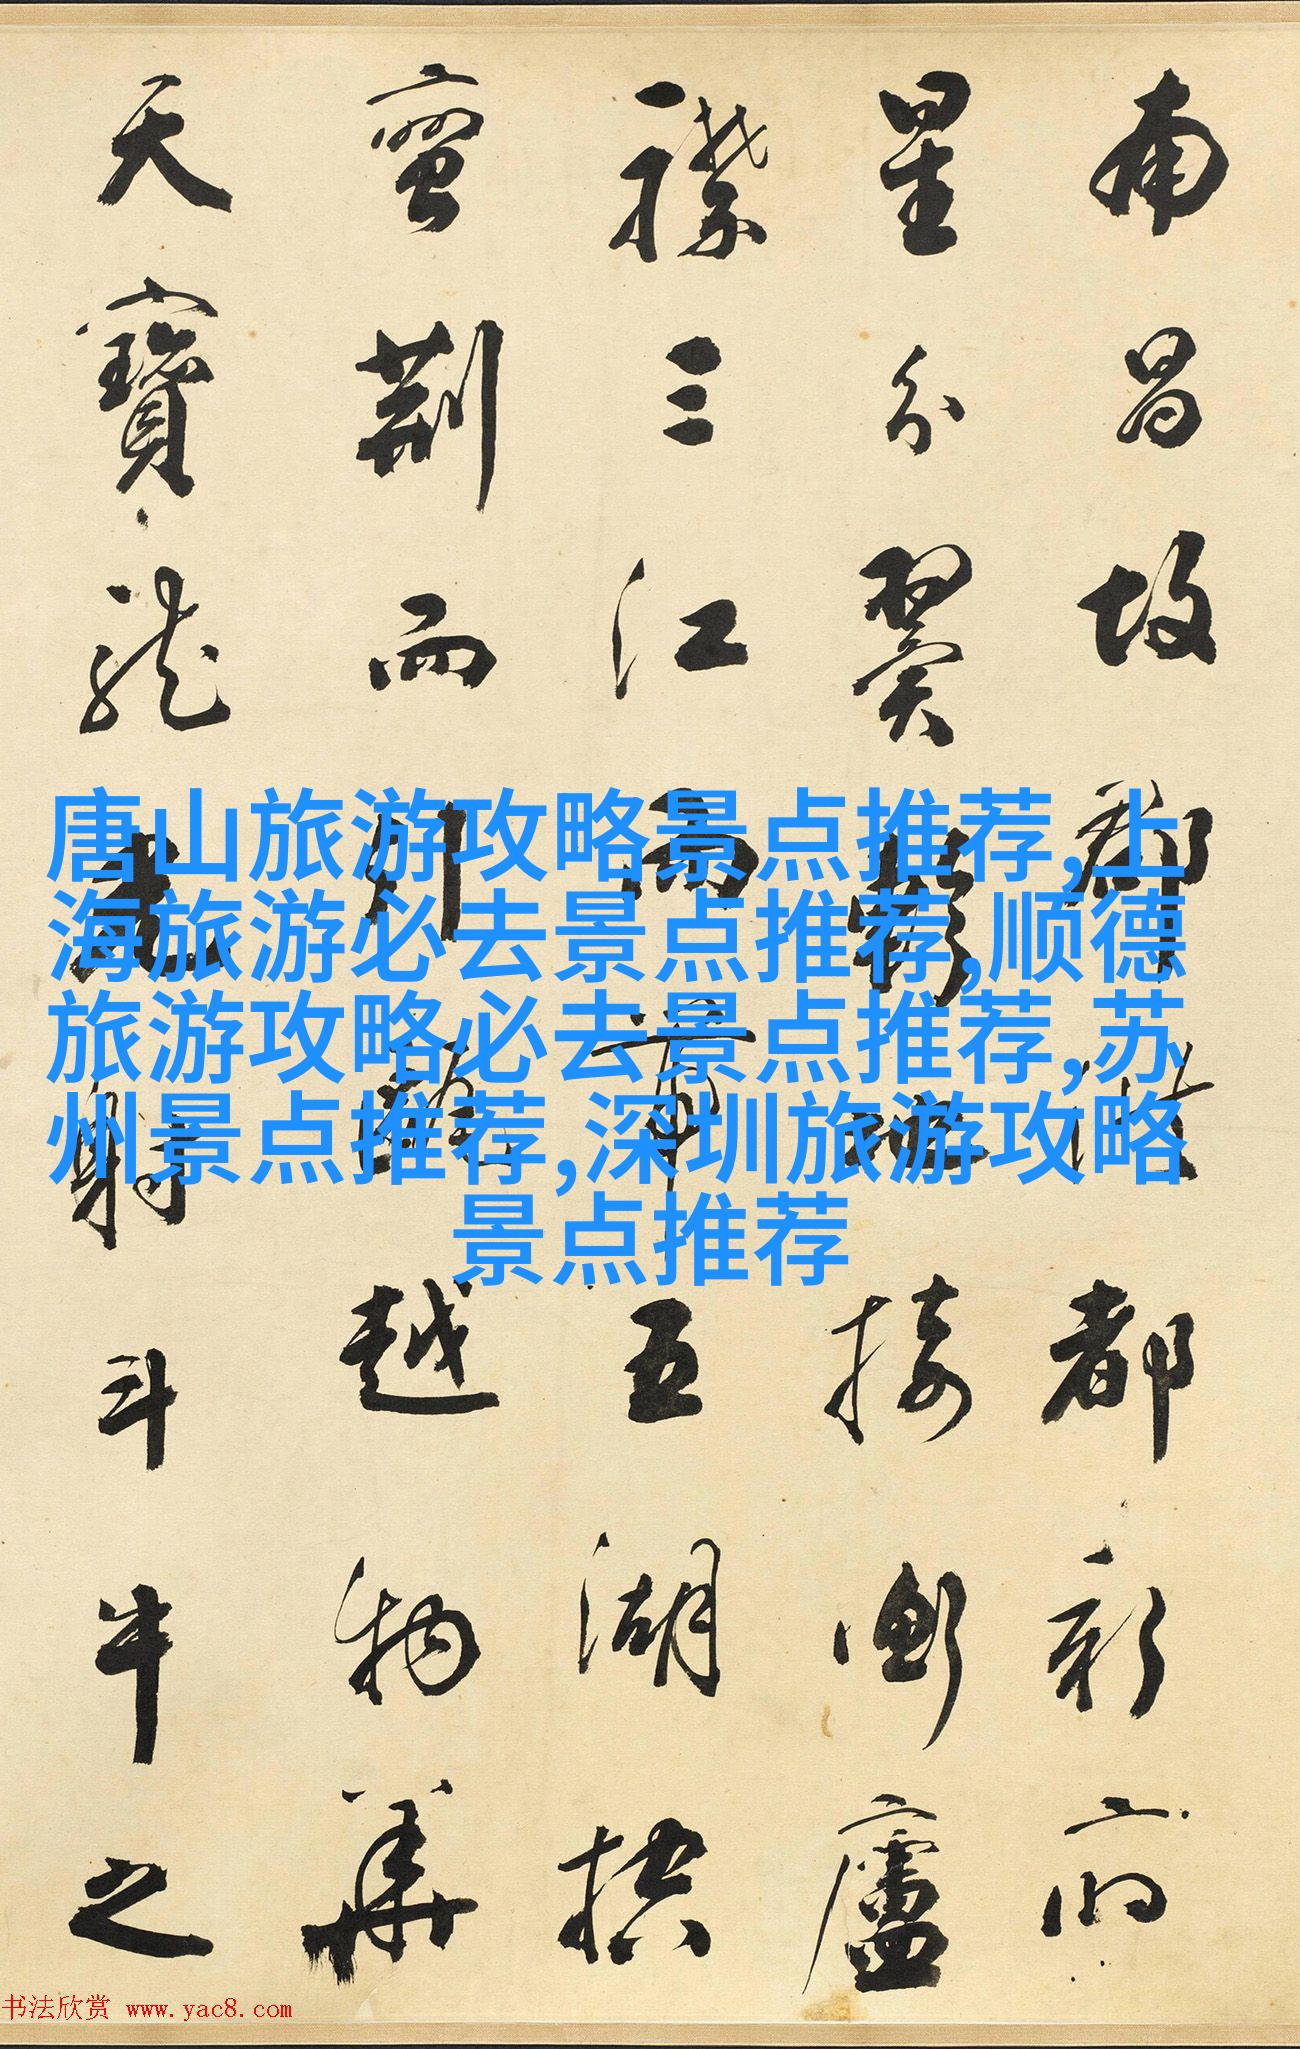 南昌故郡洪都新府
星分翼軫地接衡廬
襟三江而帶五湖控
蠻荊而引甌越物華
天寶龍光射斗牛之
唐山旅游攻略景点推荐,上
海旅游必去景点推荐,顺德
旅游攻略必去景点推荐,苏
州景点推荐,深圳旅游攻略
景点推荐
书法欣赏 www.yac8.com